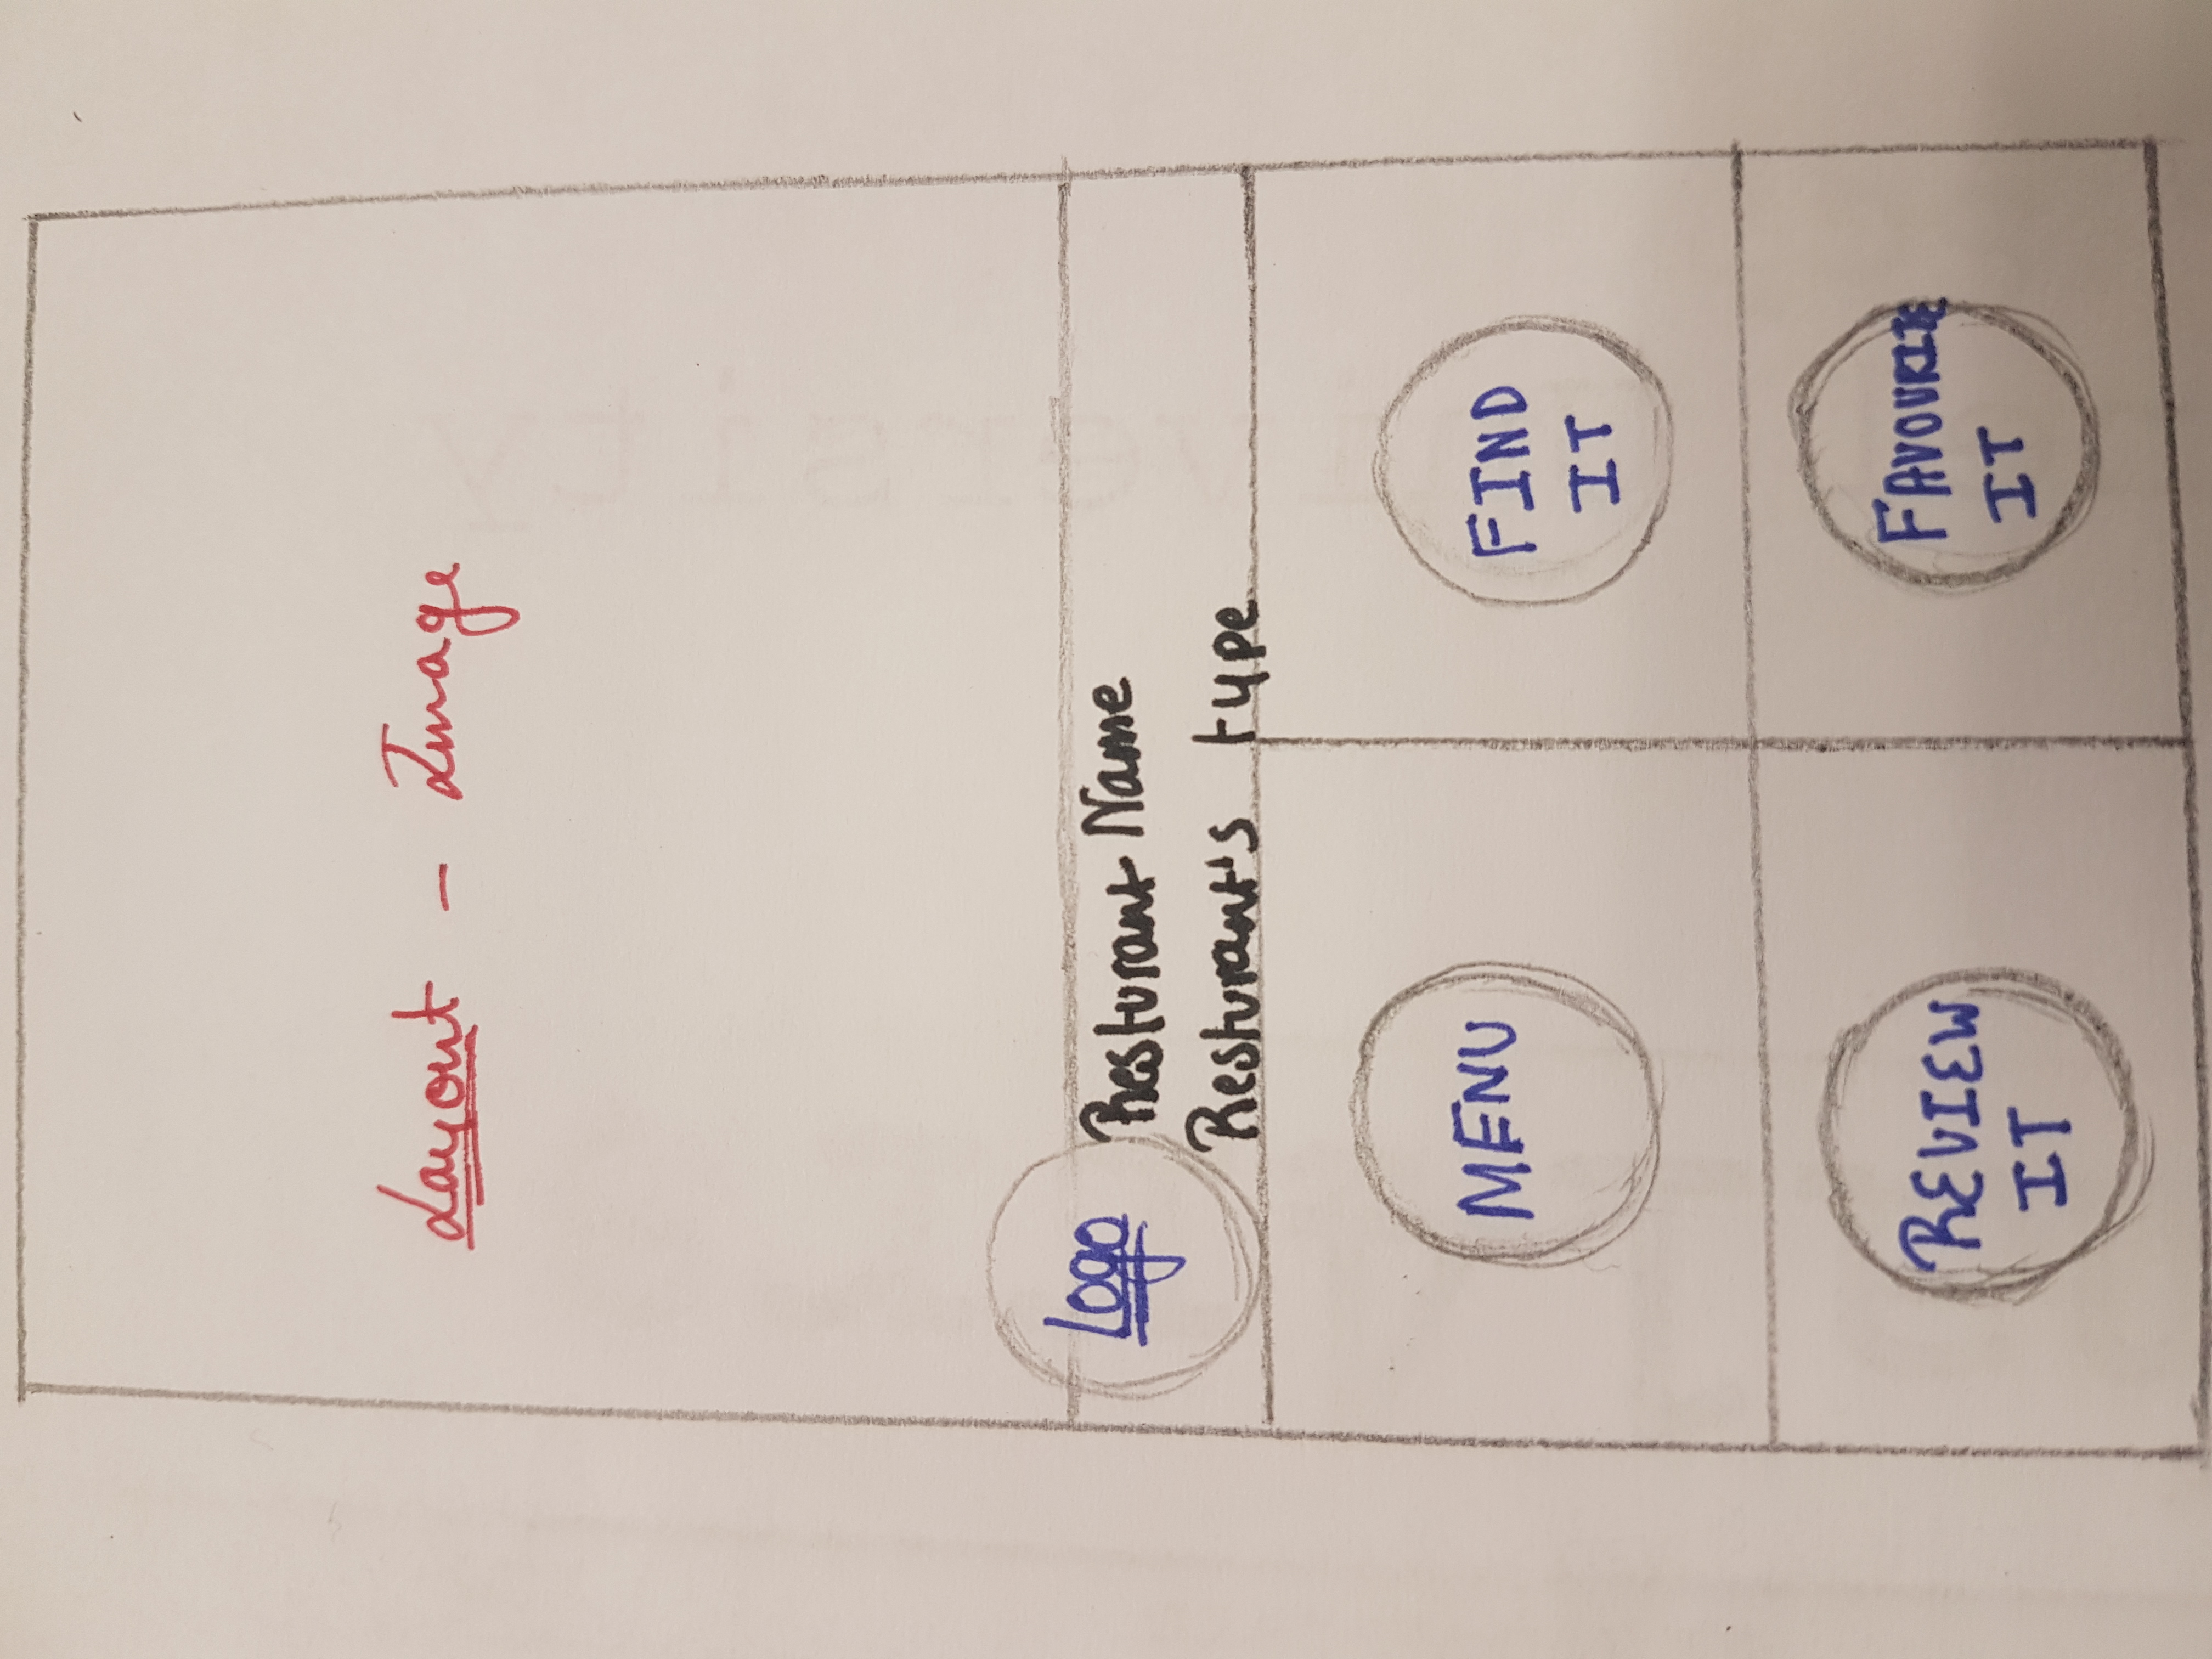 Layout - Image
Logo
Resturant Name
Resturant's type
MENU
FIND
IT
REVIEW
IT
FAVOURITE
IT